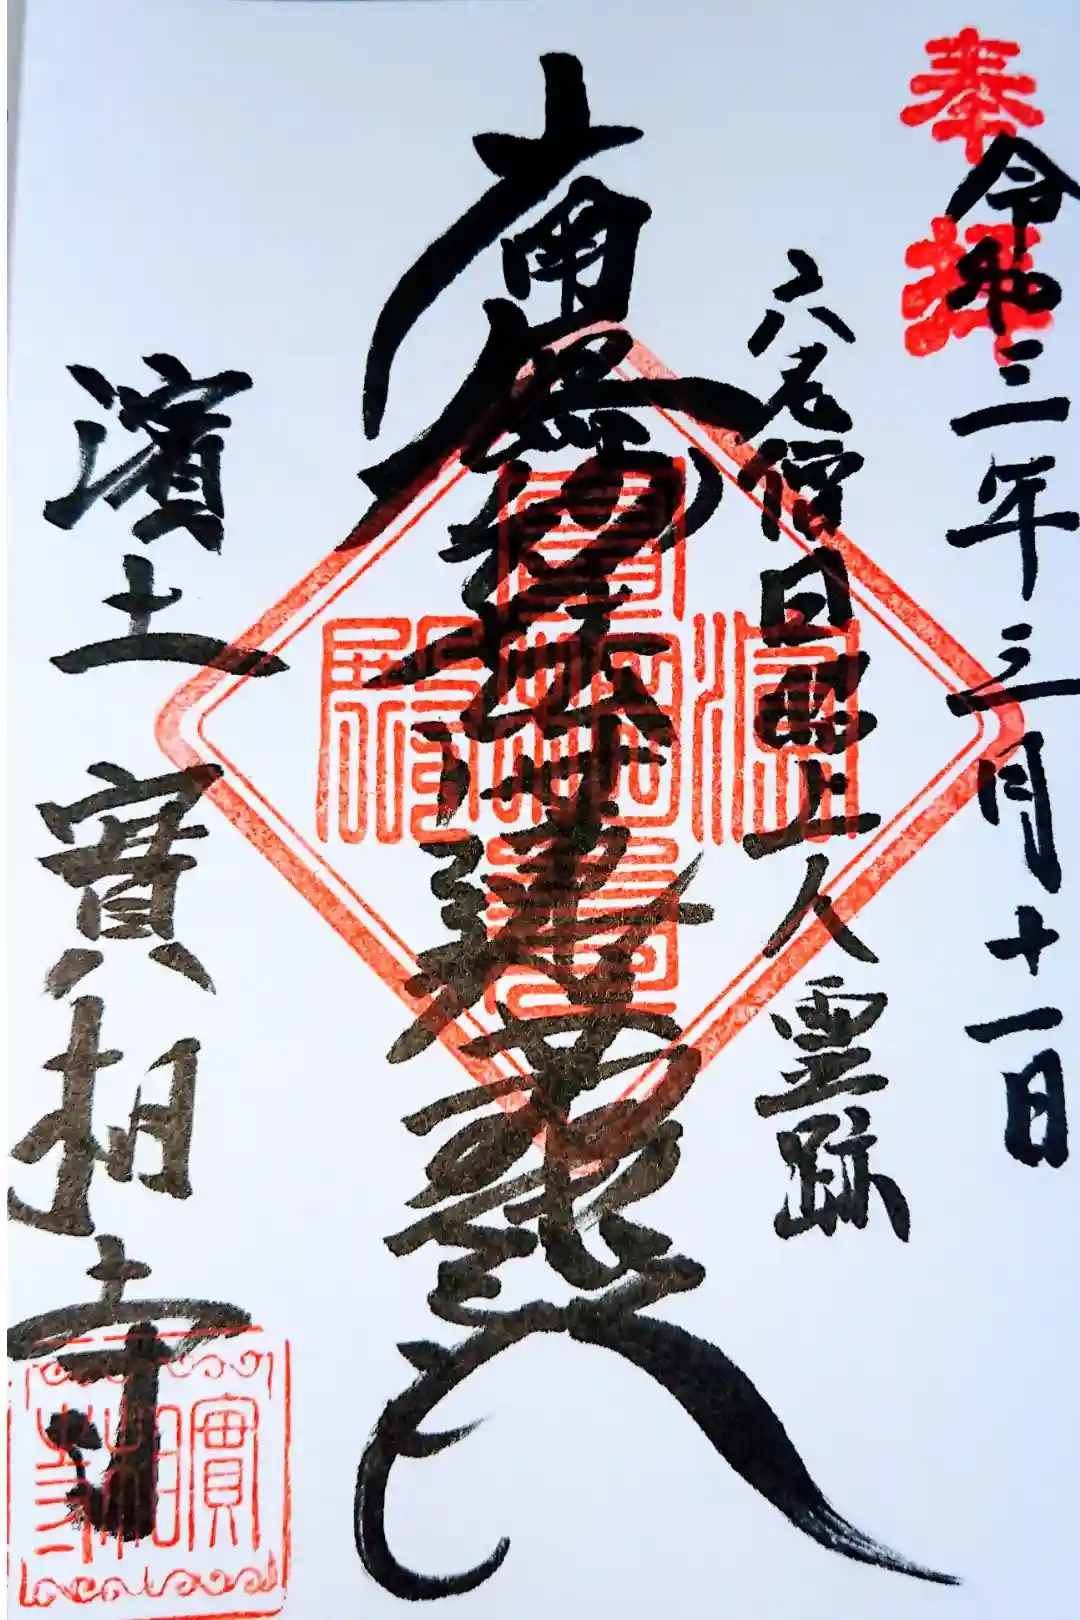 奉拝
令和三年三月十一日
六老僧日昭上人霊跡
南無妙法蓮華経
濱土 實相寺
實相寺